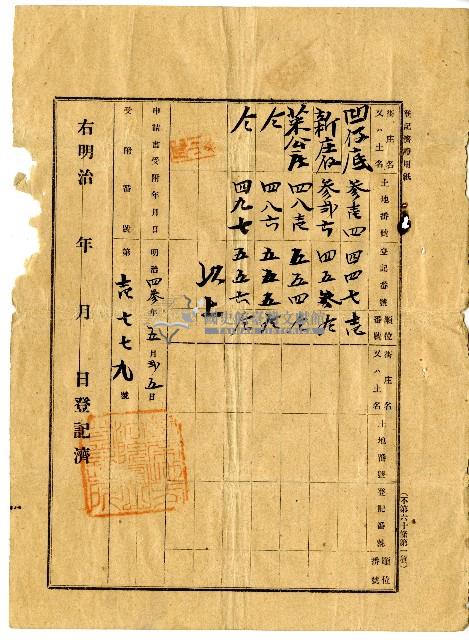 登記濟證用紙
街庄名又ハ土名 土地番號 登記番號 順位番號 街庄名又ハ土名 土地番號 登記番號 順位番號
凹仔底 參壱四 四四七 壱
新庄仔 參弐六 四五參
菜公庄 四八壱 五五四
仝 四八六 五五五
仝 四九七 五五六
以上
申請書受附年月日 明治四參年五月弐五日
受附番號 第壱七七九號
右明治 年 月 日登記濟
(不第六十條第一項)
國史館臺灣文獻館